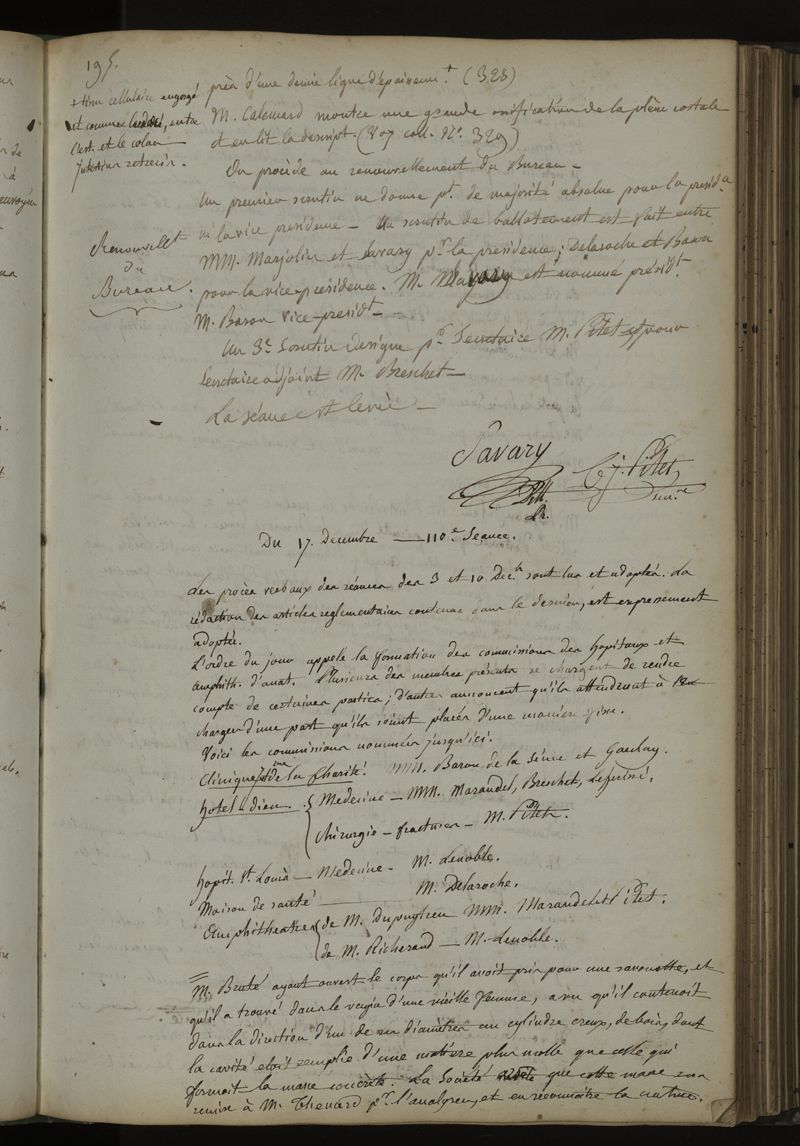 195.
près d'une demie ligne d'épaisseur. + (328)
+ tissu cellulaire engorgé
et comme lardacé, entre
l'est. et le colon
M. Calemard montre une grande ossification de la plèvre costale
et en lit la descript. (Voy coll. N°. 329)
On procède au renouvellement du Bureau –
Renouvellet
du
Bureau.
Un premier scrutin ne donne pt. de majorité absolue pour la présid.ce
ni la vice présidence – Un scrutin de ballotement est fait entre
MM. Marjolin et Savary pr. la présidence; Delaroche et Baron
pour la vice-présidence. M. Savary est nommé présidt.
M. Baron Vice-présidt –
Un 3e. Scrutin désigne pr. Secrétaire M. Pitet et pour
Secrétaire adjoint M. Breschet –
La séance est levée –
Savary
Pitet
Du 17. Decembre — 110e. Seance.
Les procès verbaux des séances des 3 et 10 Dec.bre sont lus et adoptés. La
rédaction des articles réglementaires contenus dans le dernier, est expressément
adoptée.
L'ordre du jour appele la formation des commissions des hopitaux et
amphith. d'anat. Plusieurs des membres présents se chargent de rendre
compte de certaines parties; d'autres annoncent qu'ils attendront à se
charger d'une part qu'ils soient placés d'une manière fixe.
Voici les commissions nommées jusqu'ici.
Clinique int. de la Charité. MM. Baron de la Sème et Gaulay.
hotel-dieu. { Medecine – MM. Marandel, Breschet,
Chirurgie – fractures – M. Pitet.
hopit. St. Louis — Medecine – M. Lenoble.
Maison de santé — M. Delaroche.
Amphitheatres { de M. Dupuytren MM. Marandel et Pitet.
de M. Richerand — M. Lenoble.
M. Bruté ayant ouvert le corps qu'il avoit pris pour une savonette, et
qu'il a trouvé dans le vagin d'une vieille femme, a vu qu'il contenoit
dans la direction d'un de ses diamètres un cylindre creux, de bois, dont
la cavité etoit remplie d'une matière plus molle que celle qui
formoit la masse concrète. La Société arrête que cette masse sera
remise à M. Thenard pr. l'analyser, et en reconnaitre la nature.